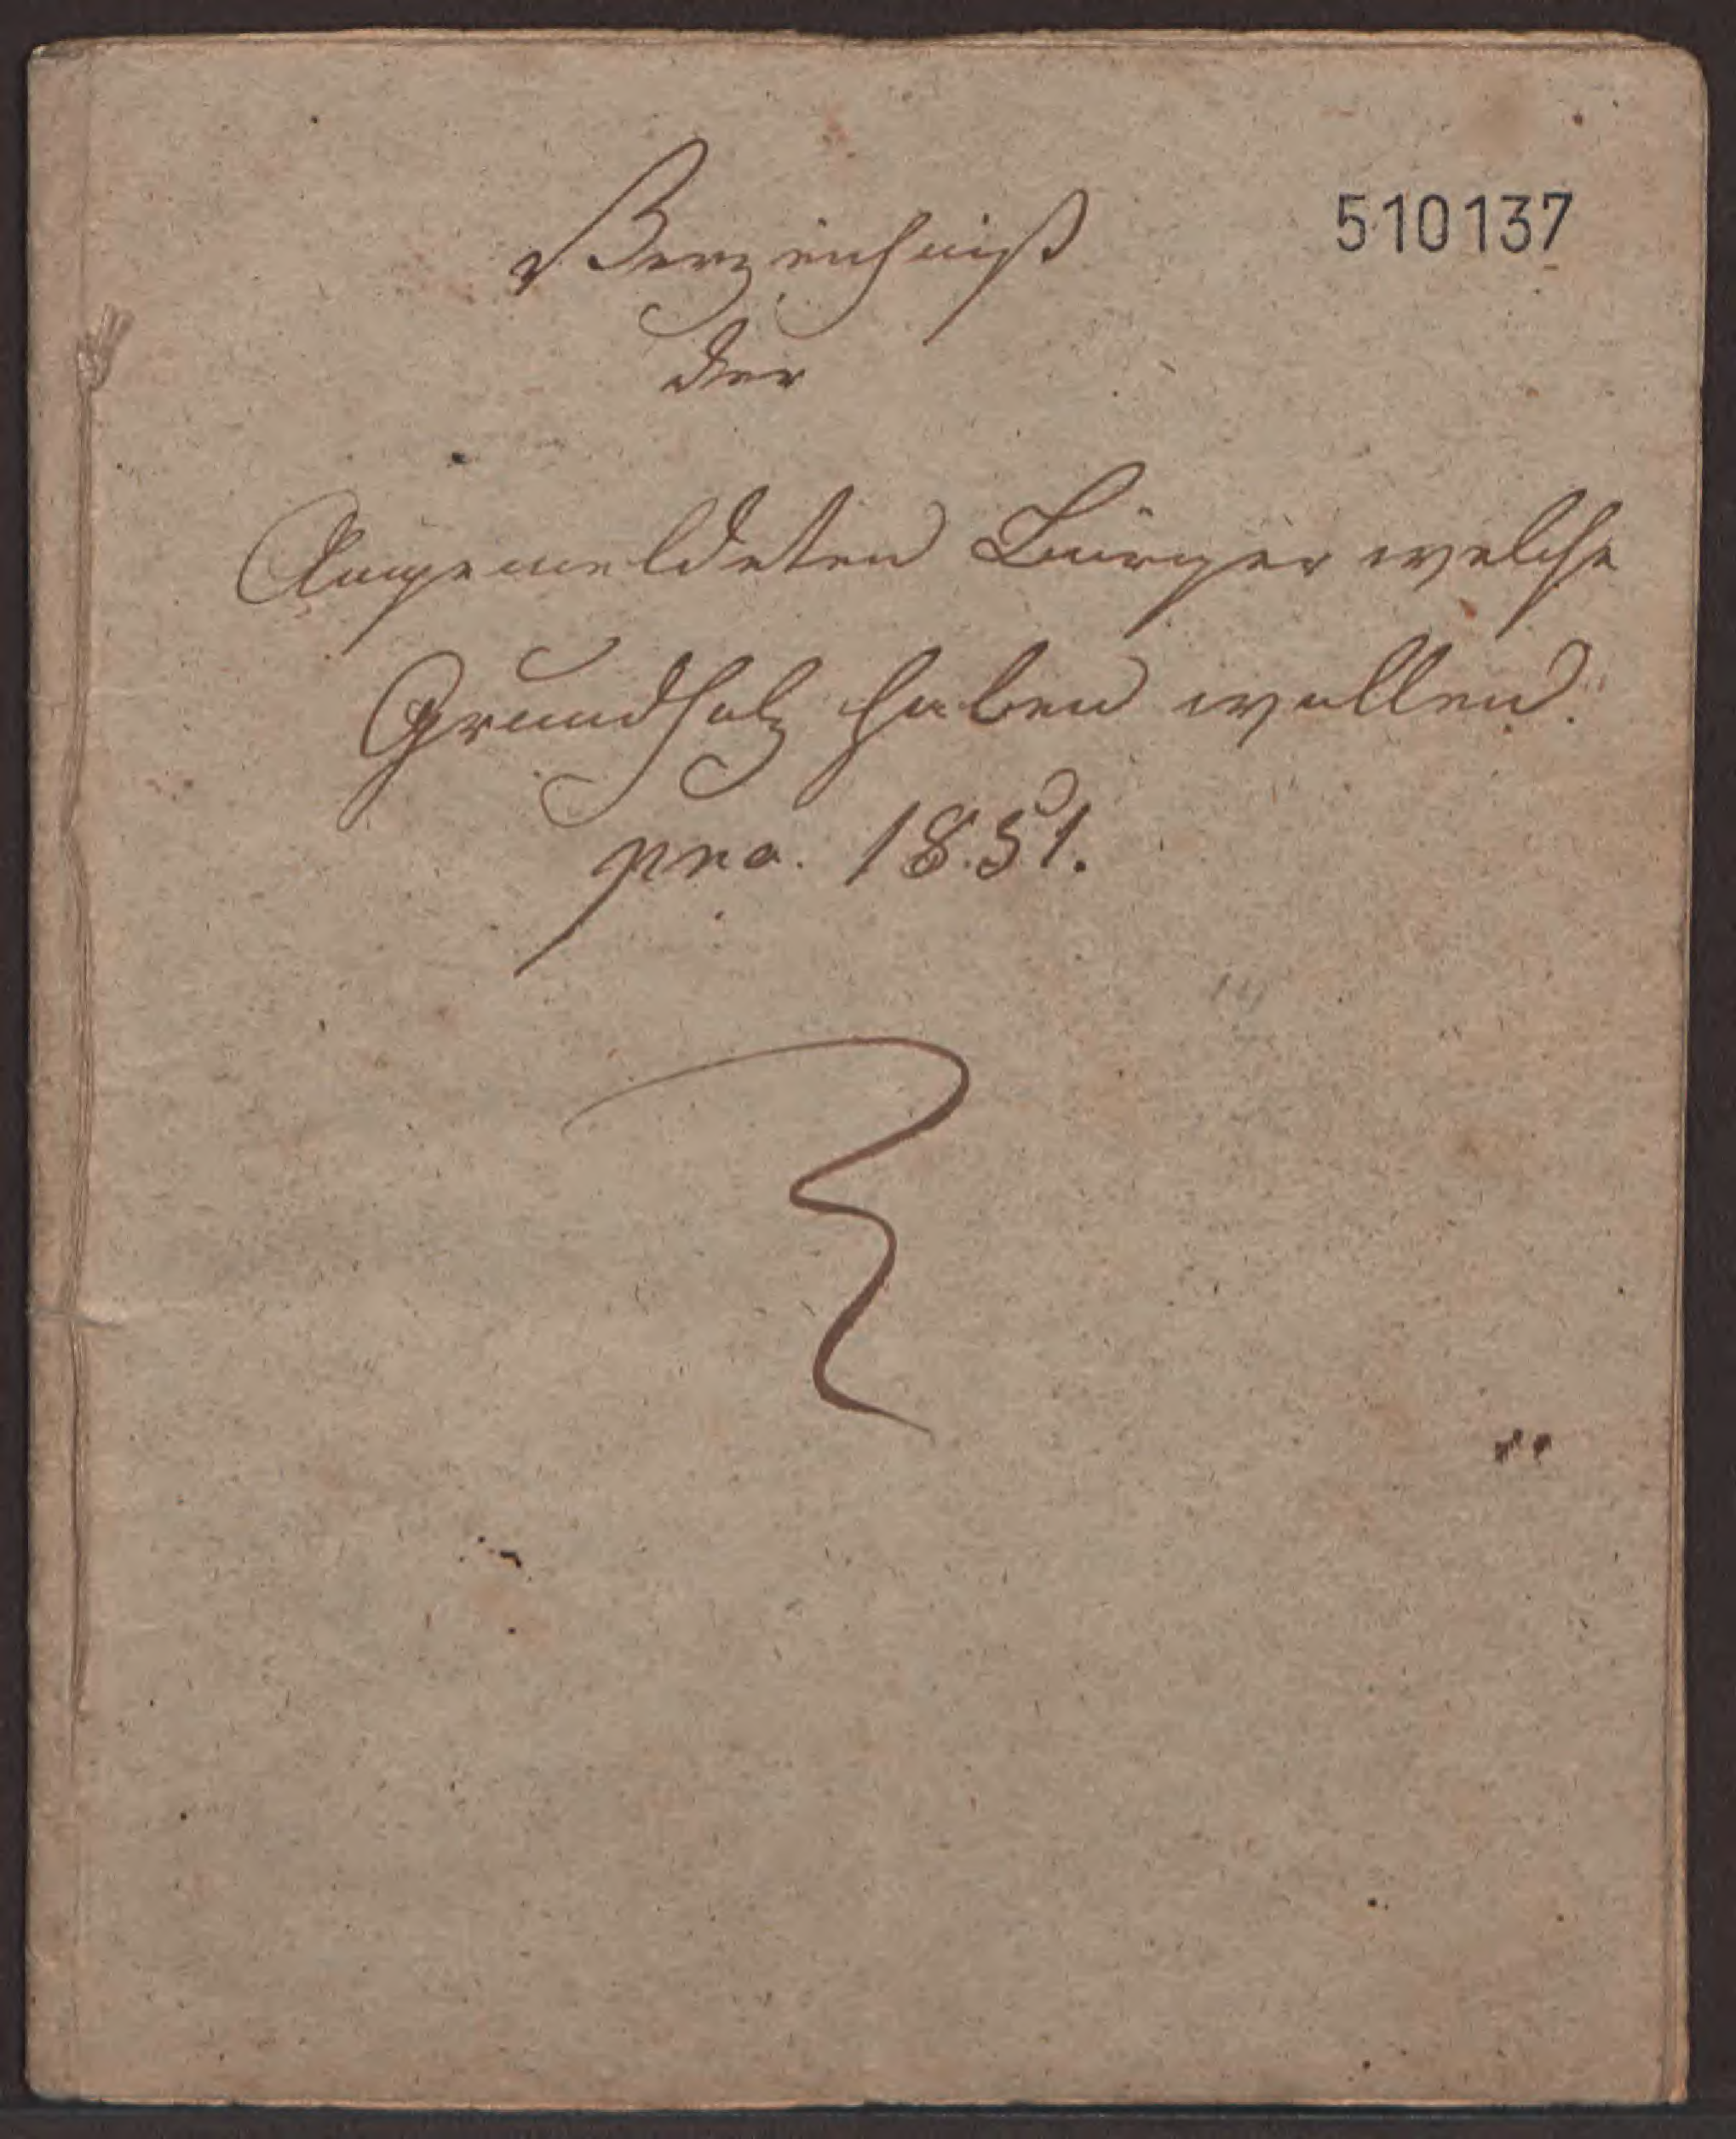 Verzeichniß
510137
der
Angemeldeten Bürger welche
Grundholz haben wollen.
pro. 1851.